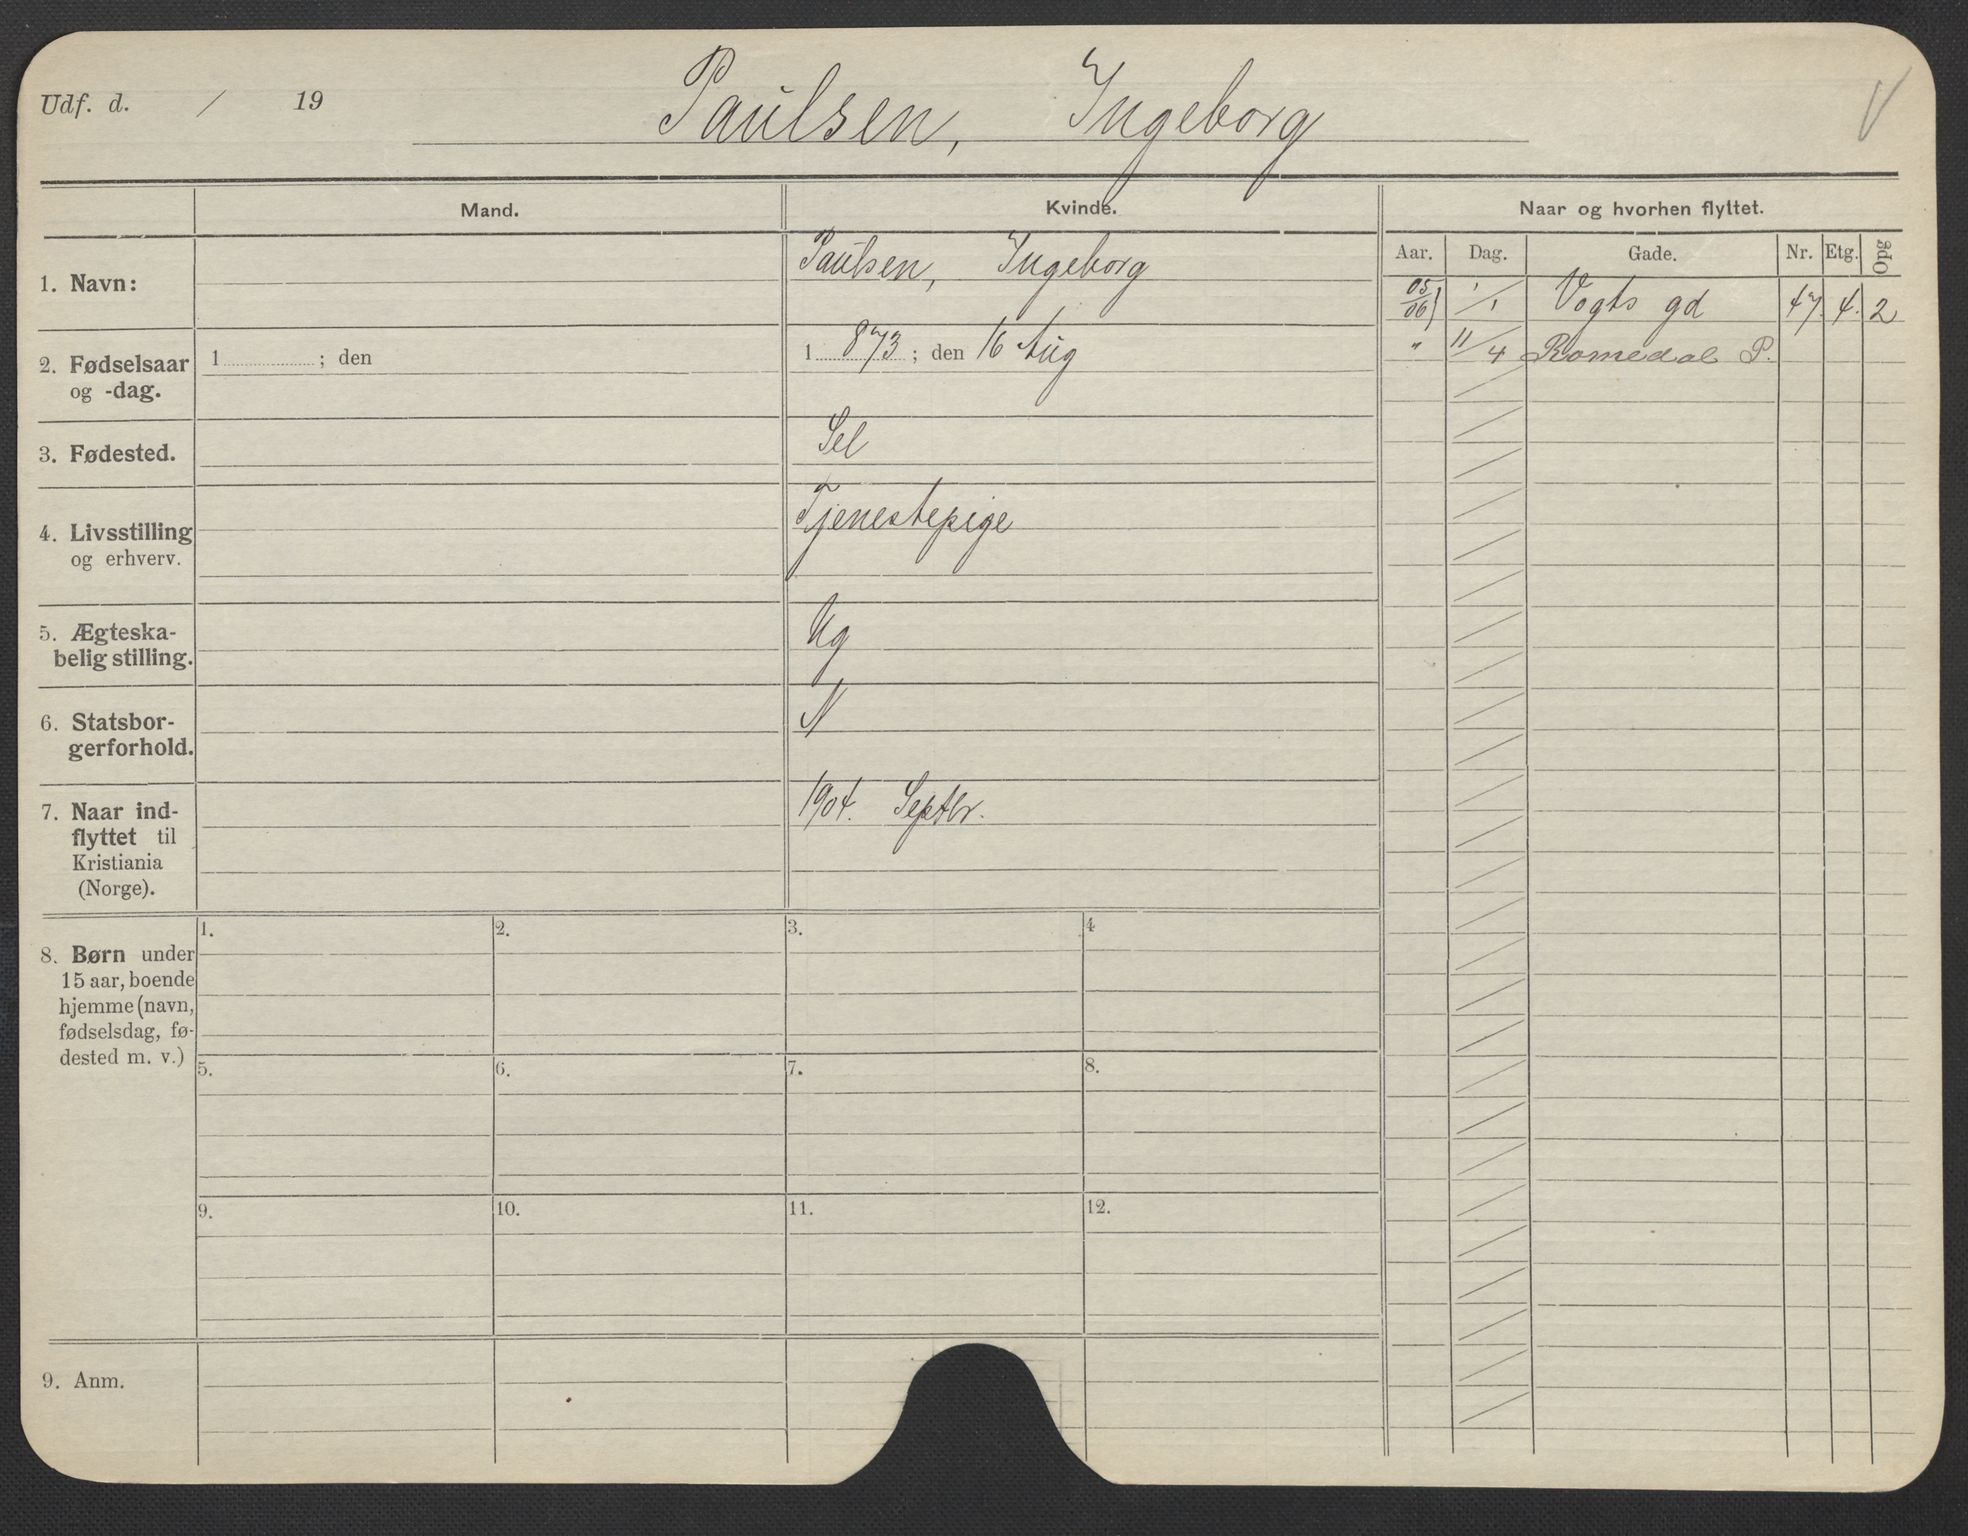 Udf. d. / 19
Paulsen, Ingeborg
V
Mand.
Kvinde.
Naar og hvorhen flyttet.
Aar. Dag. Gade. Nr. Etg. Opg
1. Navn:
Paulsen, Ingeborg
05/06} 1/1 Vogts gd 47. 4. 2
" 11/4 Romedal P.
2. Fødselsaar
og -dag.
1 ; den
1 873 ; den 16 Aug
3. Fødested.
Sel
4. Livsstilling
og erhverv.
Tjenestepige
5. Ægteska-
belig stilling.
Ug
6. Statsbor-
gerforhold.
N
7. Naar ind-
flyttet til
Kristiania
(Norge).
1904. Septbr.
8. Børn under
15 aar, boende
hjemme (navn,
fødselsdag, fø-
dested m. v.)
1. 2. 3. 4
5. 6. 7. 8.
9. 10. 11. 12.
9. Anm.